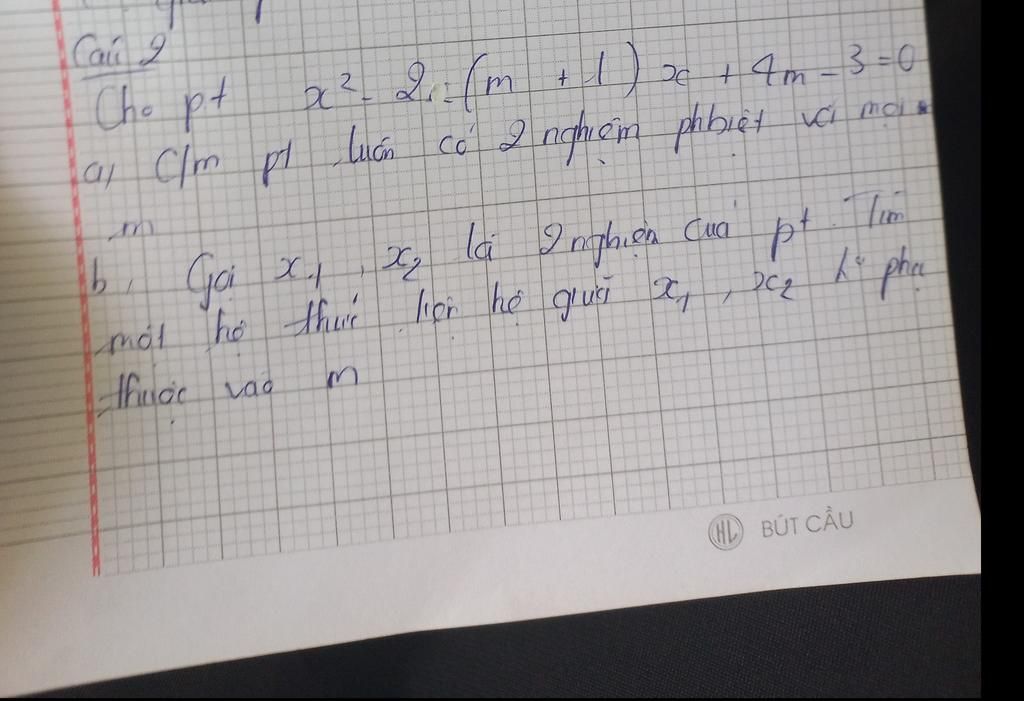 Câu 2
Cho pt x² - 2.(m + 1) x + 4m - 3 = 0
a, C/m pt luôn có 2 nghiệm phbiệt với mọi
m
b, Gọi x₁, x₂ là 2 nghiện của pt. Tìm
một hệ thức liên hệ giữa x₁, x₂ k° phụ
thuộc vào m
HL BÚT CẦU